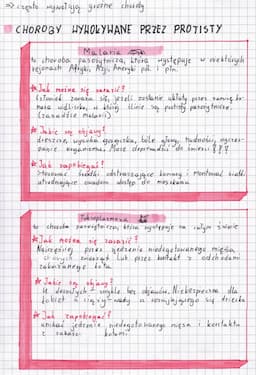 ⇒ często wywołują groźne choroby
CHOROBY WYWOŁYWANE PRZEZ PROTISTY
Malaria
to choroba pasożytnicza, która występuje w niektórych
regionach Afryki, Azji, Ameryki płd. i płn.
* Jak można się zarazić?
Człowiek zaraża się, jeżeli zostanie ukłuty przez samicę ko-
mara widliszka, w której ślinie są protisty pasożytnicze.
(zarodźce malarii)
* Jakie są objawy?
dreszcze, wysoka gorączka, bóle głowy, nudności, wyczer-
panie organizmu, Może doprowadzić do śmierci???
* Jak zapobiegać?
Stosować środki odstraszające komary i montować siatki
utrudniające owadom dostęp do mieszkania
Toksoplazmoza
to choroba pasożytnicza, która występuje na całym świecie
* Jak można się zarazić?
Najczęściej przez zjedzenie niedogotowanego mięsa,
chorych zwierząt lub przez kontakt z odchodami
zakażonego kota.
* Jakie są objawy?
U dorosłych - zwykle bez objawów, Niebezpieczna dla
kobiet w ciąży - wady u rozwijającego się dziecka
* Jak zapobiegać?
unikać jedzenia niedogotowanego mięsa i kontaktu
z kotami.